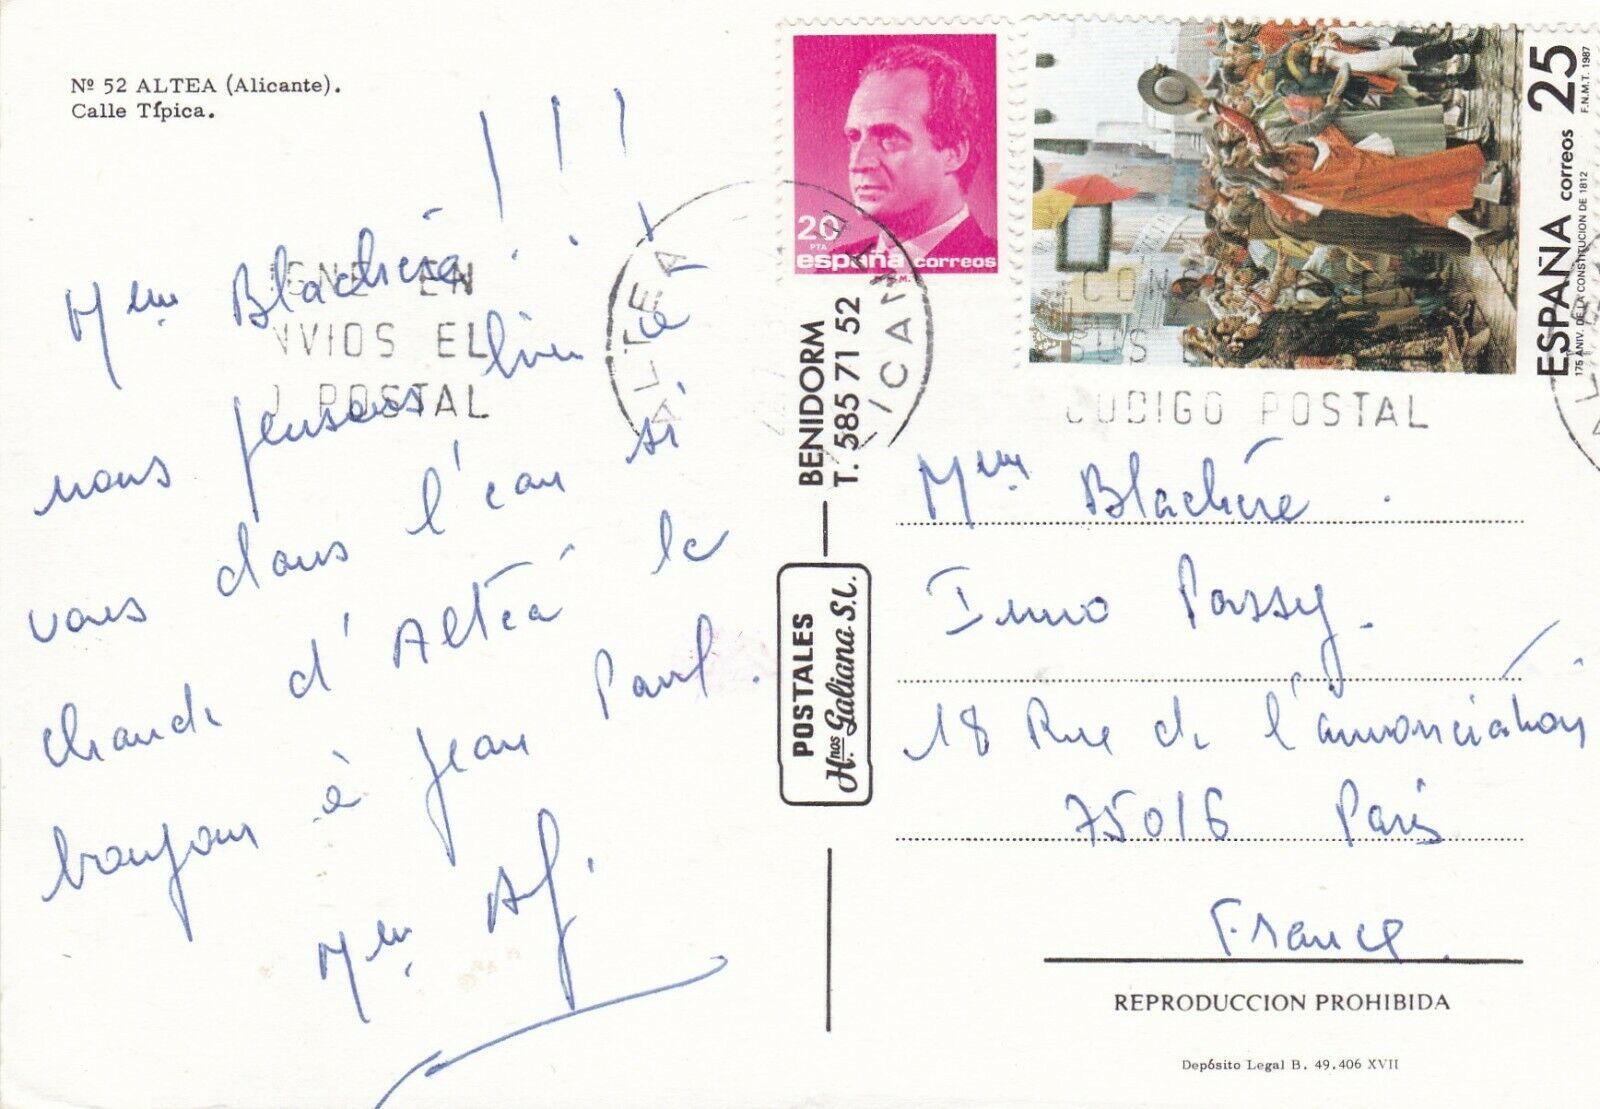 Nº 52 ALTEA (Alicante).
Calle Típica.
Mme Blachère !!!
nous pensons bien à
vous dans l'eau si
chaude d'Altéa le
bonjour à Jean Paul.
Mme
20
PTA
españa correos
ESPAÑA correos 25
175 ANIV. DE LA CONSTITUCION DE 1812 F.N.M.T. 1987
ALTEA
ICAN
GNE EN
NVIOS EL
POSTAL
CODIGO POSTAL
BENIDORM
T. 585 71 52
POSTALES
Hnos Galiana S.L.
Mme Blachère.
Immo Passy.
18 Rue de l'annonciation
75016 Paris
France.
REPRODUCCION PROHIBIDA
Depósito Legal B. 49.406 XVII